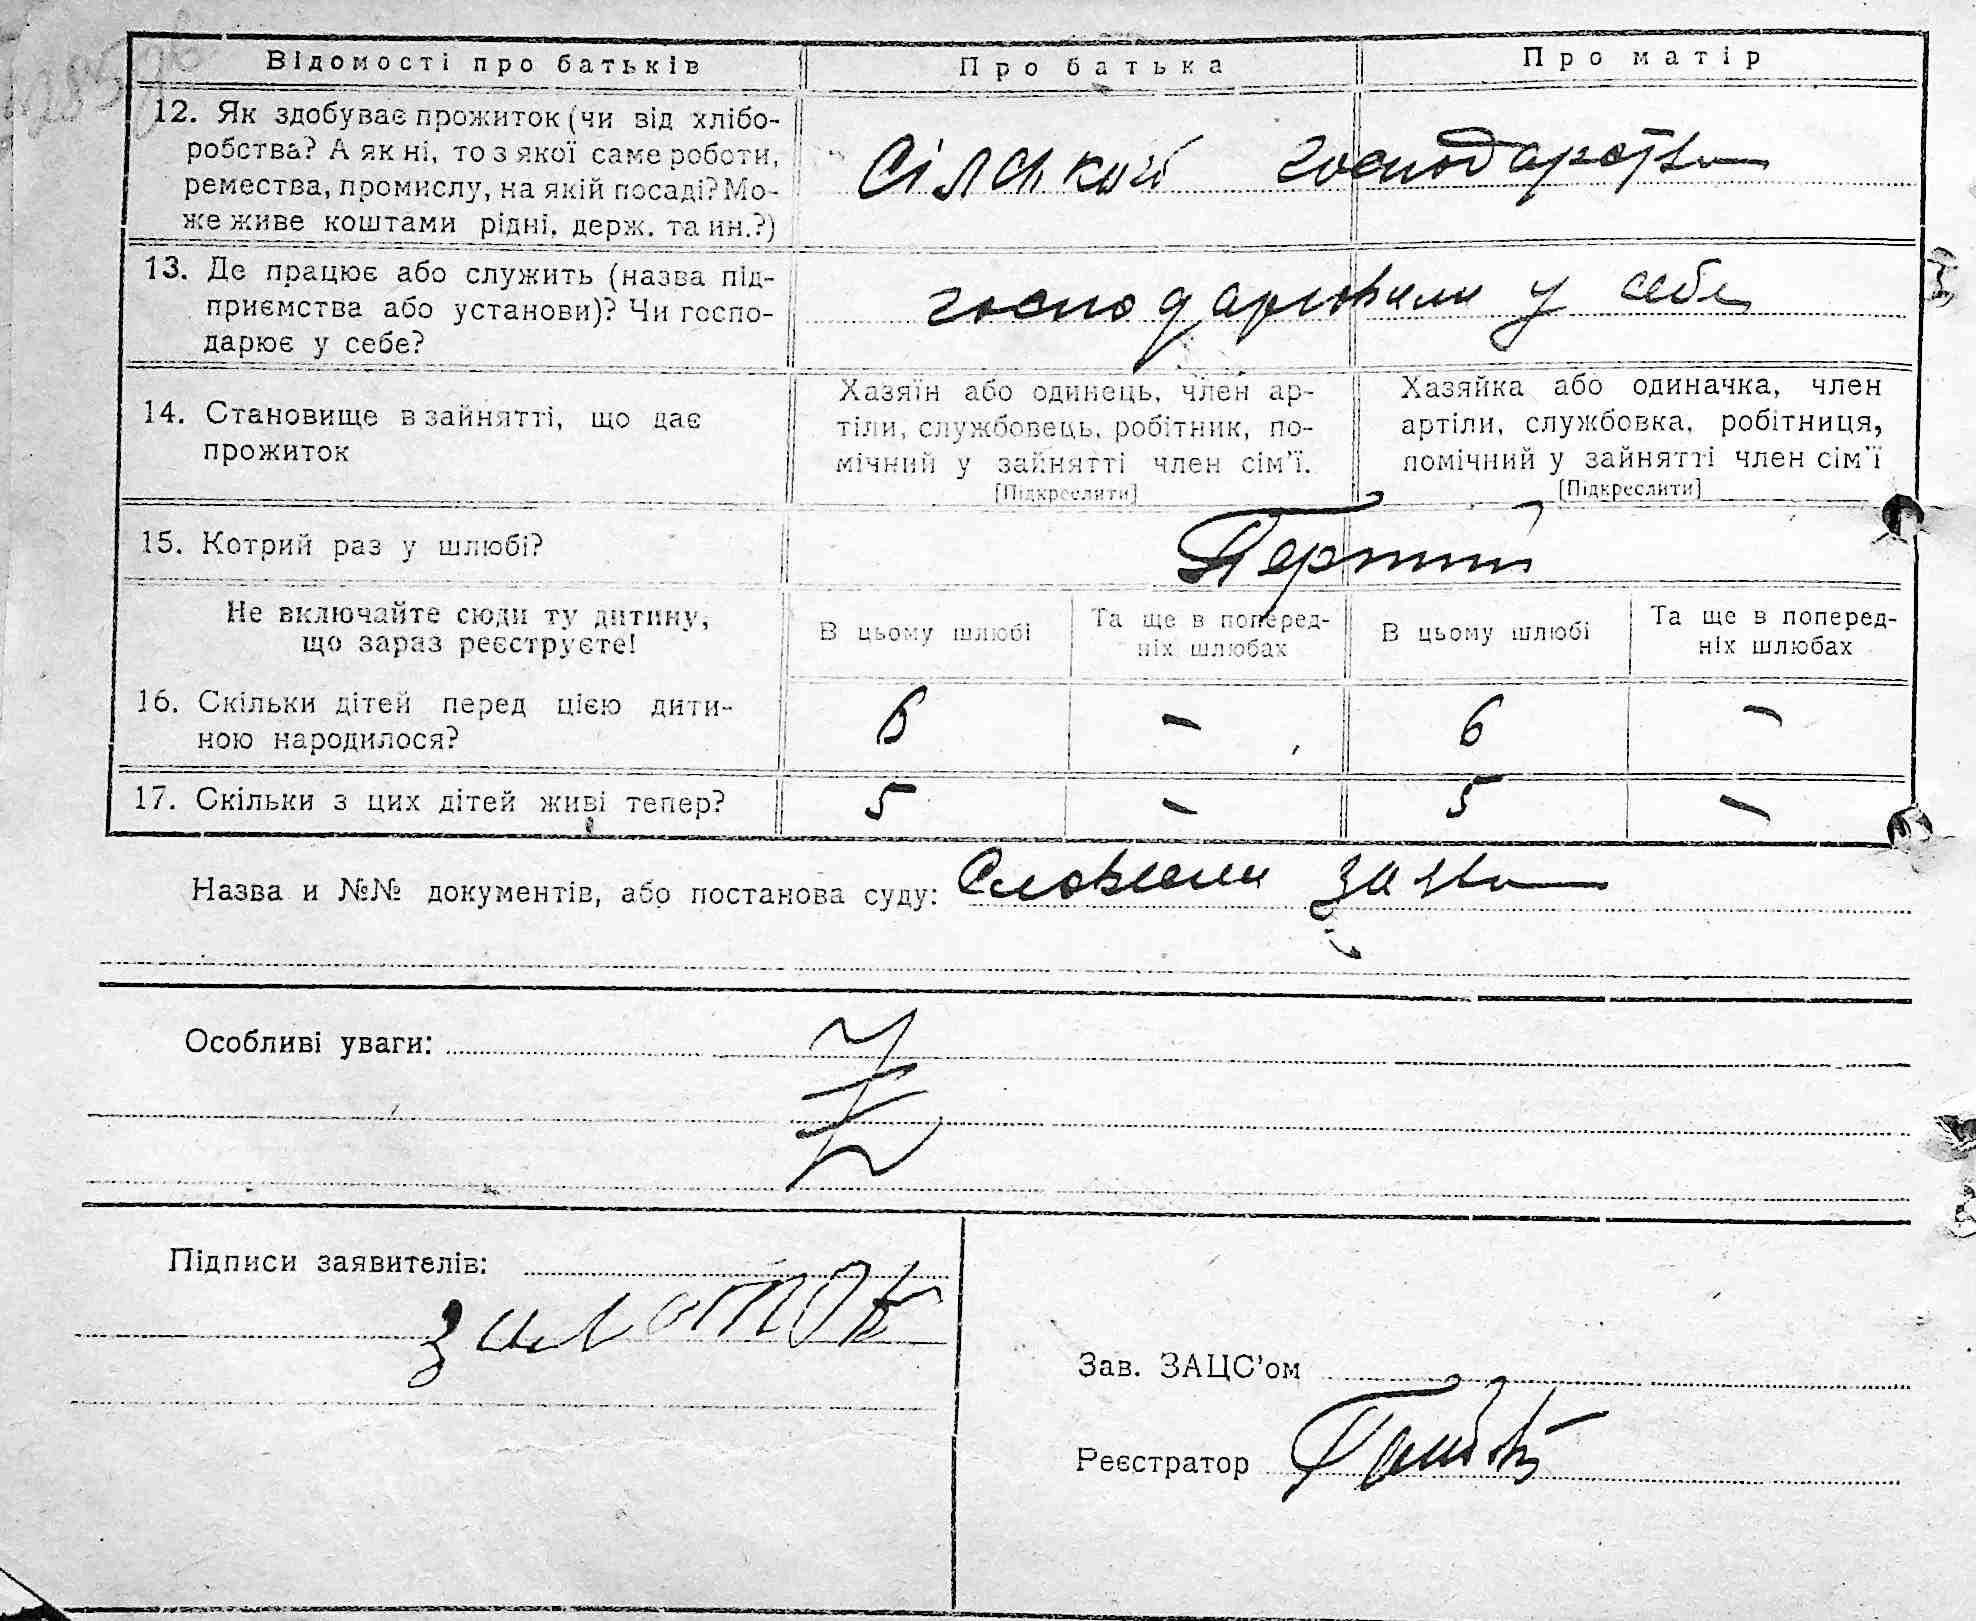 Відомості про батьків Про батька Про матір
12. Як здобуває прожиток (чи від хлібо-
робства? А як ні, то з якої саме роботи,
ремества, промислу, на якій посаді? Мо-
же живе коштами рідні, держ. та ин.?)
Сілський господарства
13. Де працює або служить (назва під-
приємства або установи)? Чи госпо-
дарює у себе?
у себе
14. Становище в зайнятті, що дає
прожиток
Хазяїн або одинець, член ар-
тіли, службовець, робітник, по-
мічний у зайнятті член сім'ї.
[Підкреслити]
Хазяйка або одиначка, член
артіли, службовка, робітниця,
помічний у зайнятті член сім'ї
[Підкреслити]
15. Котрий раз у шлюбі?
Перший
Не включайте сюди ту дитину,
що зараз реєструєте!
В цьому шлюбі
Та ще в поперед-
ніх шлюбах
В цьому шлюбі
Та ще в поперед-
ніх шлюбах
16. Скільки дітей перед цією дити-
ною народилося?
6 – 6 –
17. Скільки з цих дітей живі тепер? 5 – 5 –
Назва и №№ документів, або постанова суду:
Особливі уваги:
Підписи заявителів:
Зав. ЗАЦС'ом
Реєстратор